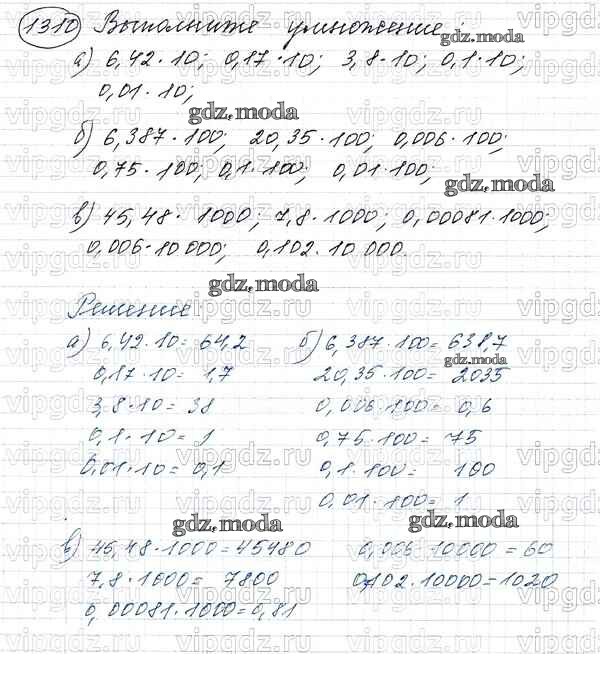 1310 Выполните умножение:
gdz.moda
а) 6,42·10; 0,17·10; 3,8·10; 0,1·10;
0,01·10;
gdz.moda
б) 6,387·100; 20,35·100; 0,006·100;
0,75·100; 0,1·100; 0,01·100;
gdz.moda
в) 45,48·1000; 7,8·1000; 0,00081·1000;
0,006·10000; 0,102·10000.
gdz.moda
Решение
а) 6,42·10=64,2
0,17·10=1,7
3,8·10=38
0,1·10=1
0,01·10=0,1
б) 6,387·100=638,7
gdz.moda
20,35·100=2035
0,006·100=0,6
0,75·100=75
0,1·100=100
0,01·100=1
gdz.moda
gdz.moda
в) 45,48·1000=45480
7,8·1000=7800
0,00081·1000=0,81
0,006·10000=60
0,102·10000=1020
vipgdz.ru